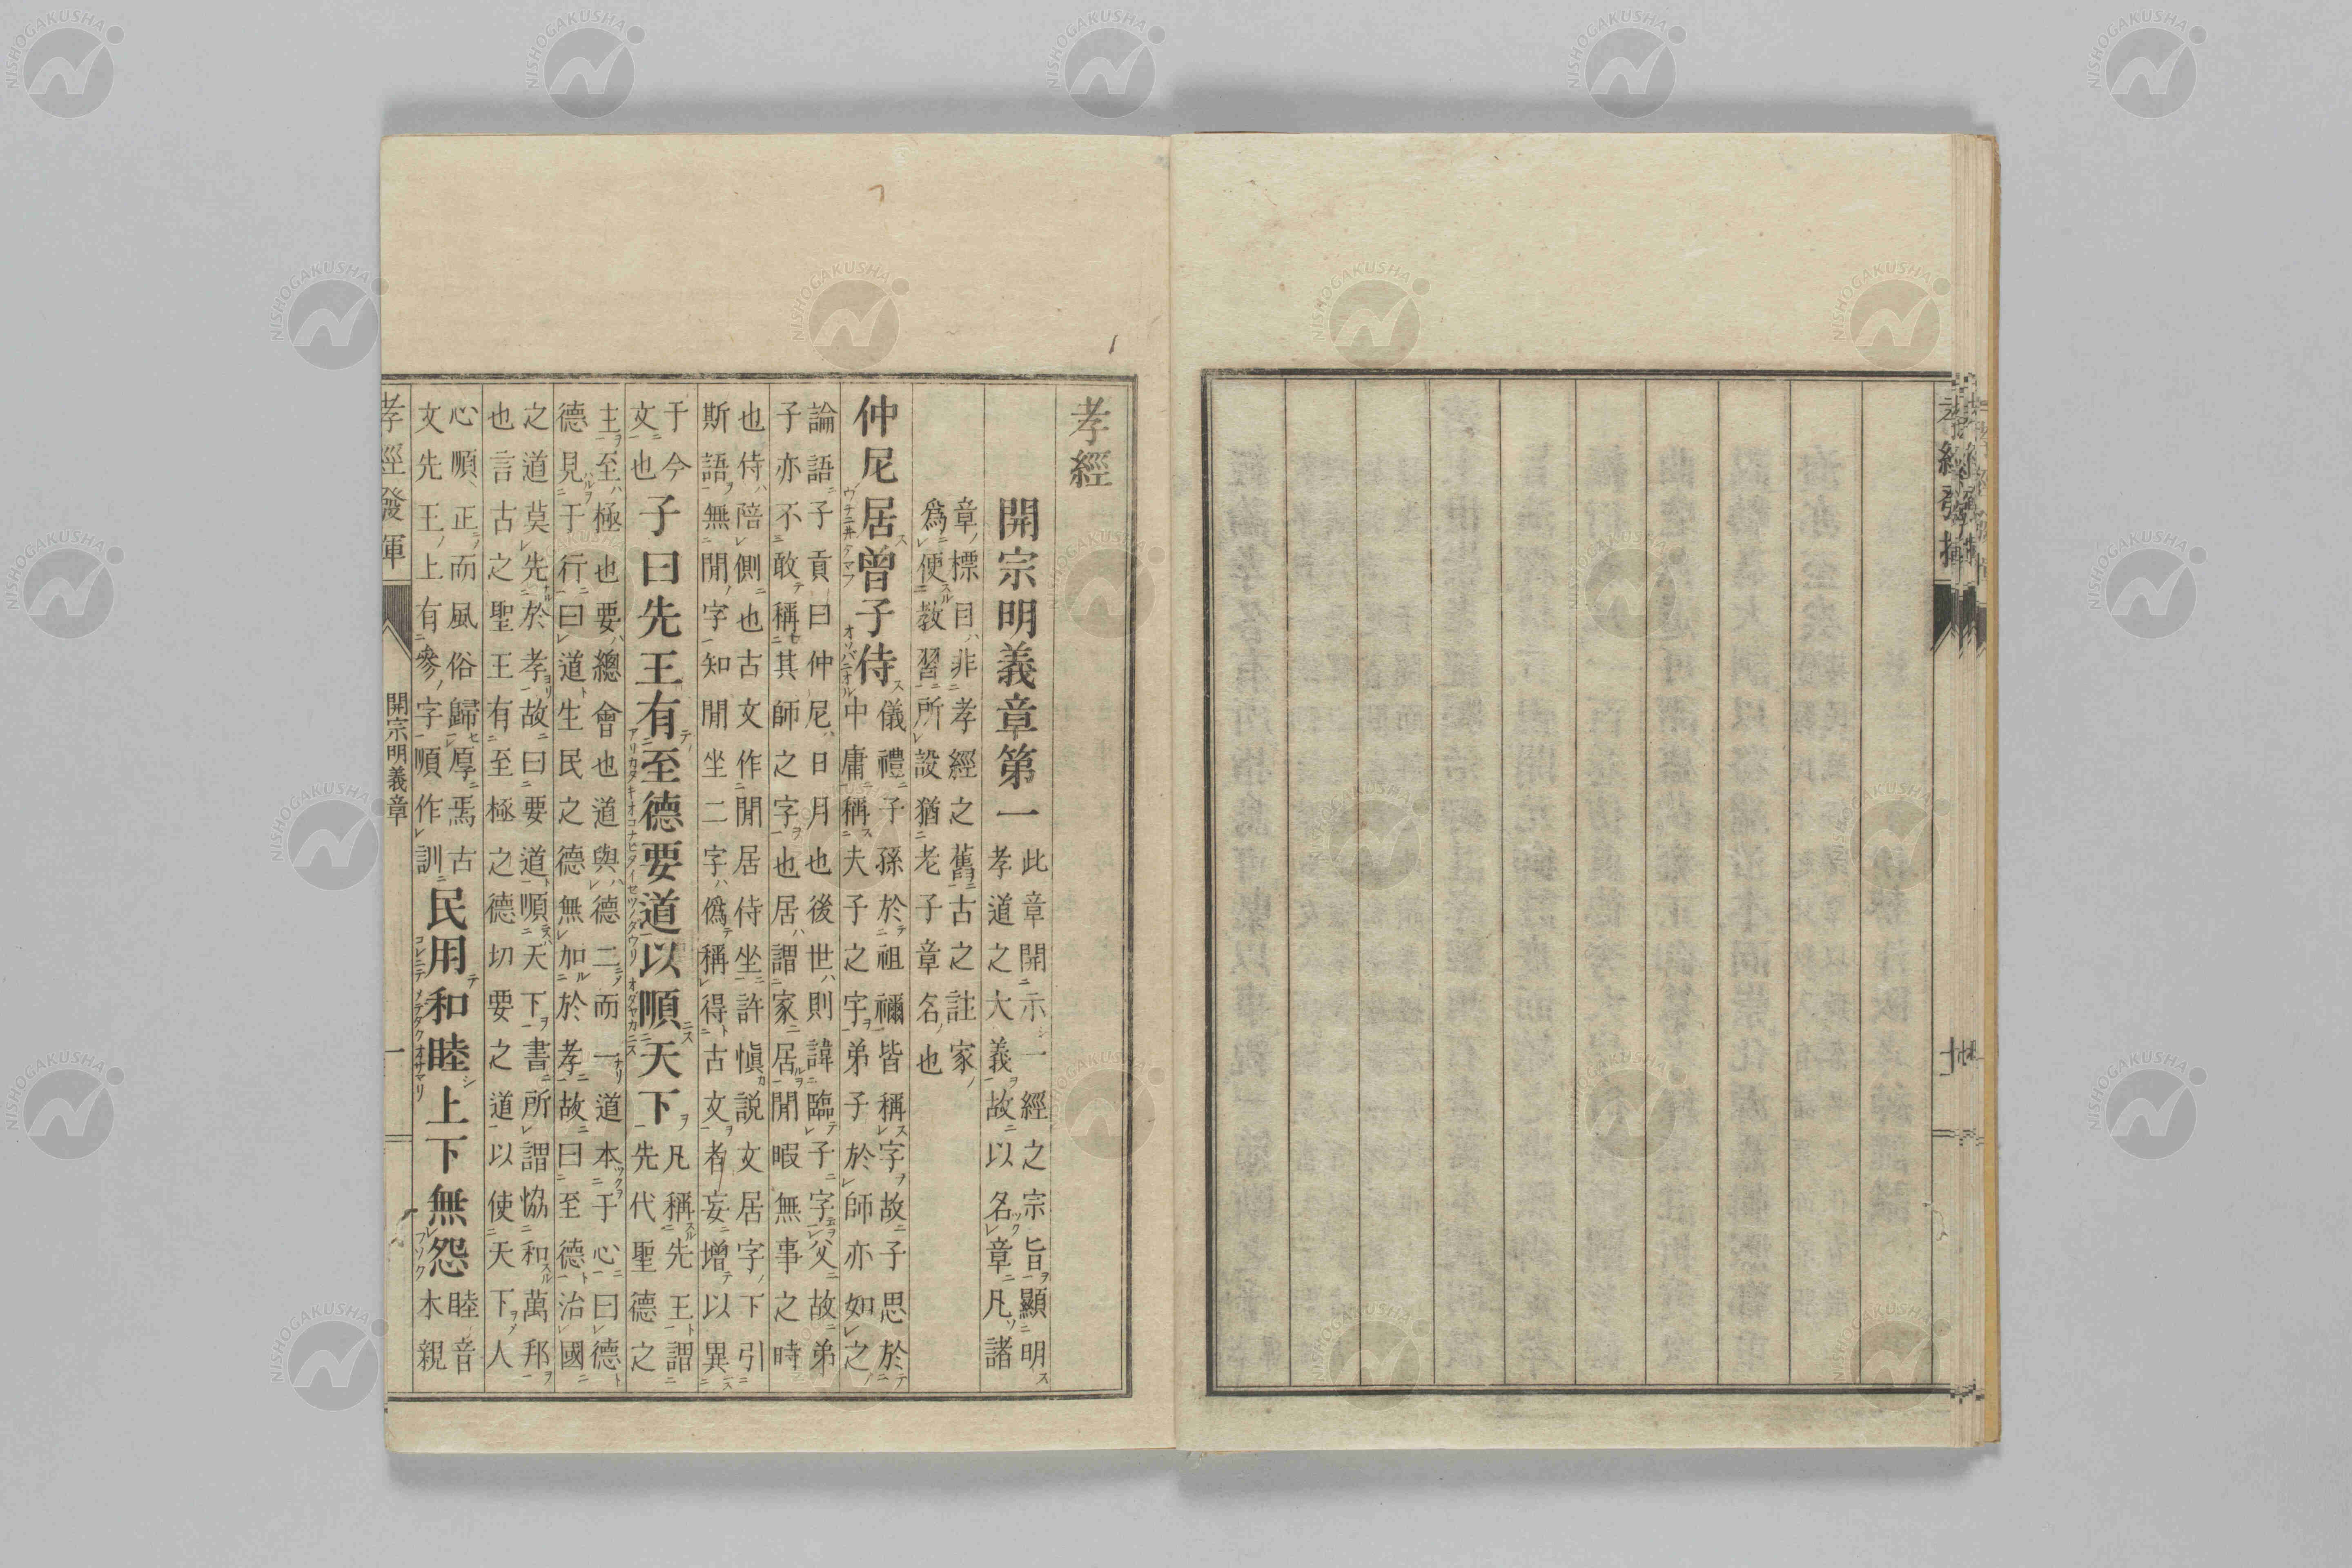 孝經
開宗明義章第一
此章開示一經之宗旨顯明
孝道之大義故以名章凡諸
章標目非孝經之舊古之註家
爲便教習所設猶老子章名也
仲尼居曾子侍
儀禮子孫於祖禰皆稱字故子思於
中庸稱夫子之字弟子於師亦如之
論語子貢曰仲尼日月也後世則諱臨子字父故弟
子亦不敢稱其師之字也居謂家居閒暇無事之時
也侍陪側也古文作閒居侍坐許愼說文居字下引
斯語無閒字知閒坐二字僞稱得古文者妄增以異
于今
文也
子曰先王有至德要道以順天下
凡稱先王謂
先代聖德之
主至極也要總會也道與德二而一道本于心曰德
德見于行曰道生民之德無加於孝故曰至德治國
之道莫先於孝故曰要道順天下書所謂協和萬邦
也言古之聖王有至極之德切要之道以使天下人
心順正而風俗歸厚焉古
文先王上有參字順作訓
民用和睦上下無怨
睦音
木親
孝經發揮
開宗明義章
一
NISHOGAKUSHA